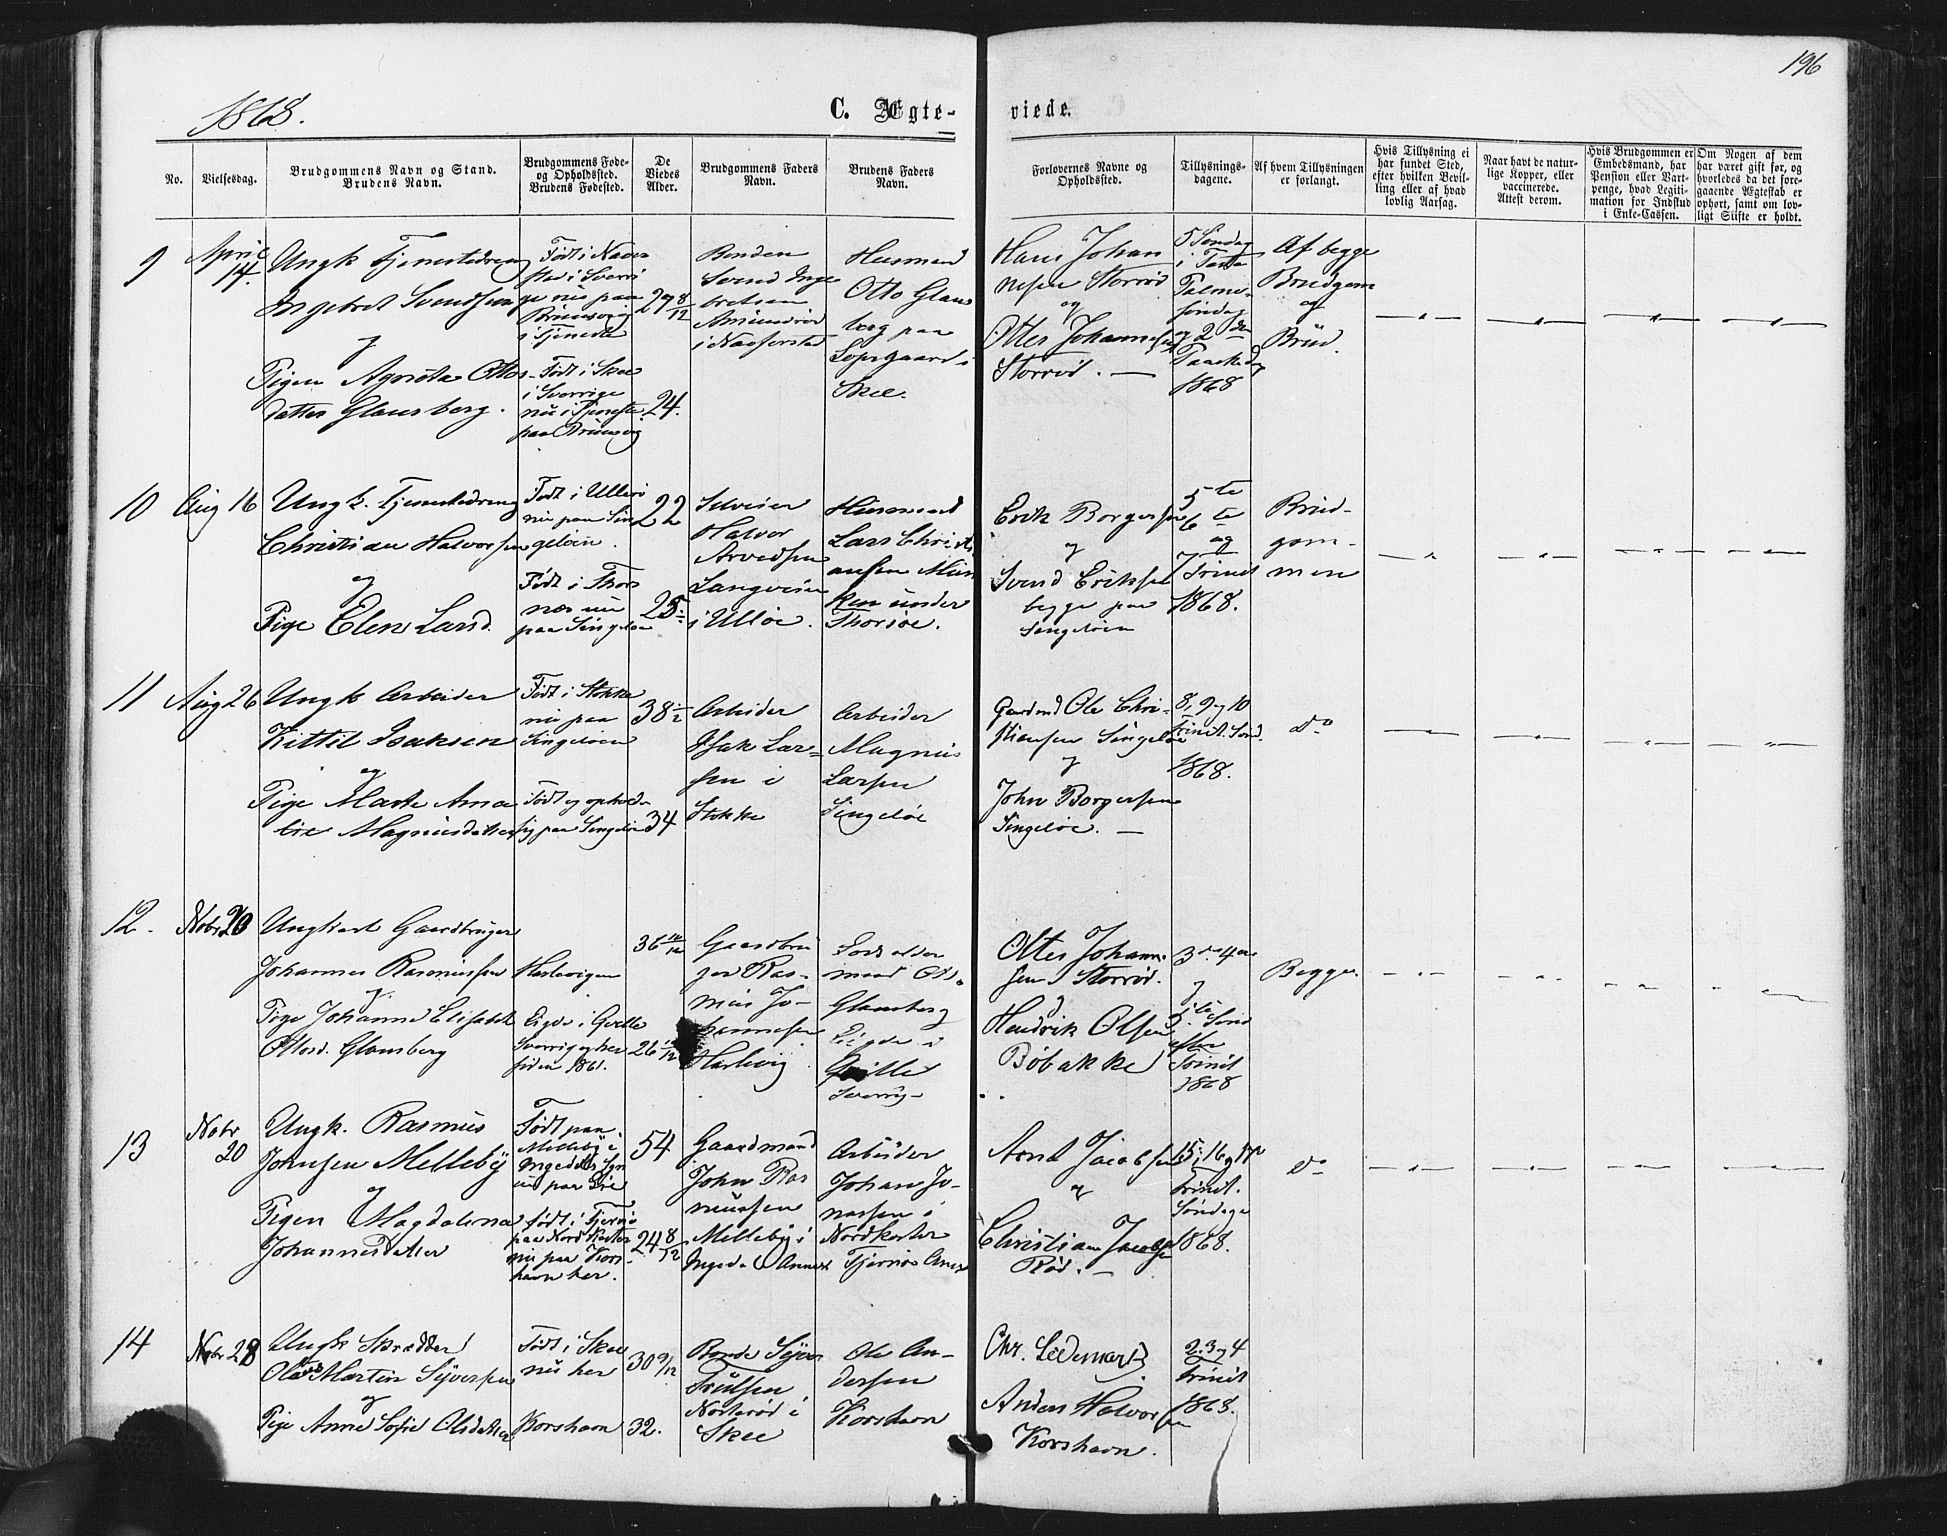 196
1868.
C. Ægte-
viede.
No.
Vielsesdag.
Brudgommens Navn og Stand.
Brudens Navn.
Brudgommens Føde-
og Opholdssted.
Brudens Fødested.
De
Viedes
Alder.
Brudgommens Faders
Navn.
Brudens Faders
Navn.
Forlovernes Navne og
Opholdssted.
Tillysnings-
dagene.
Af hvem Tillysningen
er forlangt.
Hvis Tillysning ei
har fundet Sted,
efter hvilken Bevil-
ling eller af hvad
lovlig Aarsag.
Naar havt de natur-
lige Kopper, eller
vaccinerede.
Attest derom.
Hvis Brudgommen er
Embedsmand, har
Pension eller Vart-
penge, hvad Legiti-
mation for Indskud
i Enke-Cassen.
Om Nogen af dem
har været gift før, og
hvorledes da det fore-
gaaende Ægteskab er
ophørt, samt om lov-
ligt Skifte er holdt.
9
April
14.
Ungk Tjenestedreng
Ingebret Svendsen
og
Pigen
Otters
datter Glansberg.
Født i
sted i Sverri
ge nu paa
i Tjeneste
Født i Skee
i Sverrige
nu i Tjeneste
paa
29 8/12
24.
Bonden
Svend Inge
bretsen
Husmand
Otto Glans
berg paa
i
Skee.
Hans Johan
nesen Storrød
og
Otter Johannesen
Storrød.
5 Søndag
i Faste
Palme-
søndag
og 2den
Paaskedag
1868
Af begge
Brudgom
og
Brud.
10
Aug 16
Ungk. Tjenestedreng
Christian Halvorsen
og
Pige Elen Larsd.
Født i
nu paa Sin
geløen.
Født i Thors
næs nu
paa Singeløe
22
25
Halvor
Arvedsen
i
Husmand
Lars Christi
ansen
under
Erik Borgersen
og
Svend Eriksen
begge paa
Singeløen
5te
6te
og
7 Trinit
1868.
Brud-
gom-
men
11
Aug 26
Ungk Arbeider
Kittil Isaksen
og
Pige Marte Ama
lie Magnusdatter
Født i Stokke
nu paa
Singeløen
Født og opholder
sig paa Singeløe
38 1/2
34
Arbeider
Isak Lar-
sen i
Stokke
Arbeider
Magnus
Larsen
Singeløe
Gaardmd Ole Chri-
stiansen Singeløe
og
John Borgersen
Singeløe.
8, 9 og 10
Trinit. Sønd.
1868.
do
12.
Nobr 20
Ungkarl Gaardbruger
Johannes Rasmussen
og
Pige Johanne Elisabeth
Ottosd. Glansberg
Sverrig og her
siden 1861.
36 10/12
26
Gaardbru
ger Ras-
mus Jo-
hannesen
mand Otto
Glansberg
i
Sverrig
Otter Johann-
sen Storrød.
Hendrik Olsen
Bøbakke
3die 4de
og
5te Sønd
efter
Trinit
1868
Begge.
13
Nobr
20
Ungk. Rasmus
Johnsen Melleby
og
Pigen Magdalena
Johannesdatter
Født paa
Melleby i
nu paa
Født i Tjernø
paa Nord Koster
nu paa Kors-
havn her.
54
24 8/12
Gaardmand
John Ras
mussen
Melleby i
Annex
Arbeider
Johan Jo-
nassen i
Nordkoster
Tjernø Anex
Arnt Jacobsen
og
Christian Jacobsen
Rød.
15, 16 og 17de
Trinit.
Søndage
1868.
do
14
Nobr 28
Ungk Skrædder
Martin Syversen
og
Pige Anne Sofie Olsdatter
Født i Skee
nu her
Korshavn
30 9/12
32.
Bonde Syver
Trulsen
i
Skee
Ole An-
dersen
Korshavn
Chr.
Anders Halvorsen
Korshavn.
2. 3 og 4
Trinit
1868.